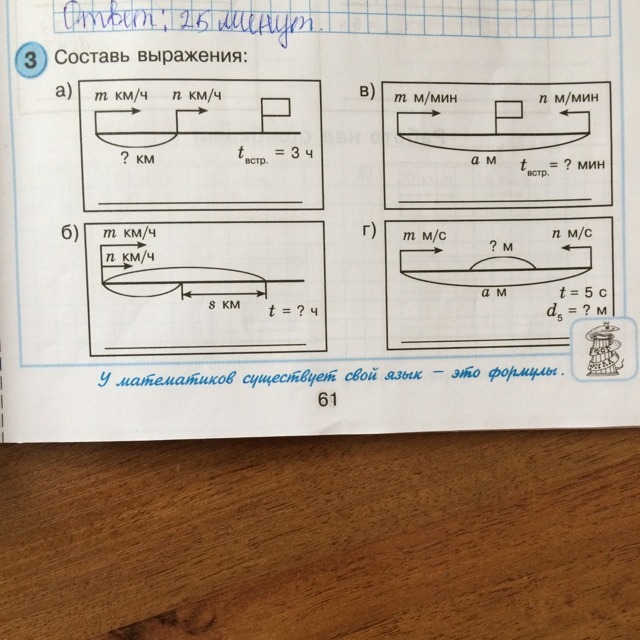 Ответ: 25 минут.
3 Составь выражения:
а) m км/ч n км/ч
? км tвстр. = 3 ч
в) m м/мин n м/мин
a м tвстр. = ? мин
б) m км/ч
n км/ч
s км t = ? ч
г) m м/с ? м n м/с
a м t = 5 с
d5 = ? м
У математиков существует свой язык – это формулы.
61